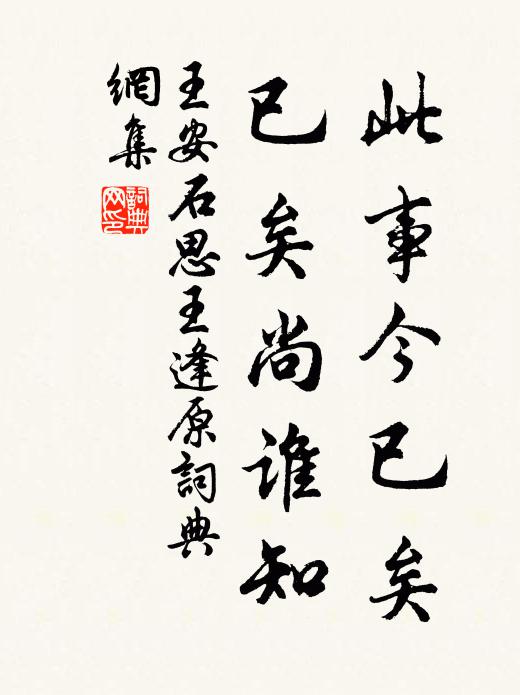 此事今已矣
已矣尚誰知
王安石思王逢原詞典
網集
詞典
网印